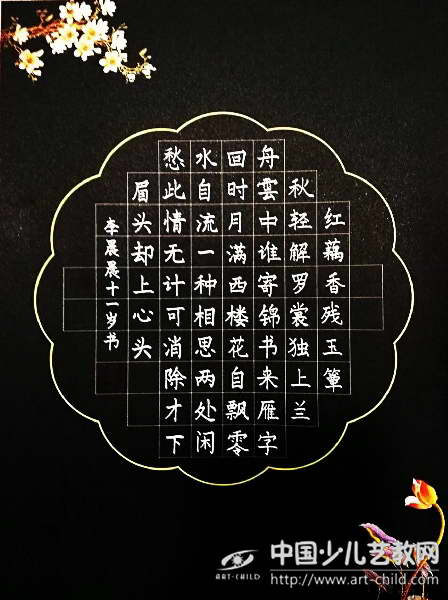 红藕香残玉簟
秋轻解罗裳独上兰
舟雲中谁寄锦书来雁字
回时月满西楼花自飘零
水自流一种相思两处闲
愁此情无计可消除才下
眉头却上心头
李晨晨十一岁书
ART-CHILD
中国·少儿艺教网
http://www.art-child.com